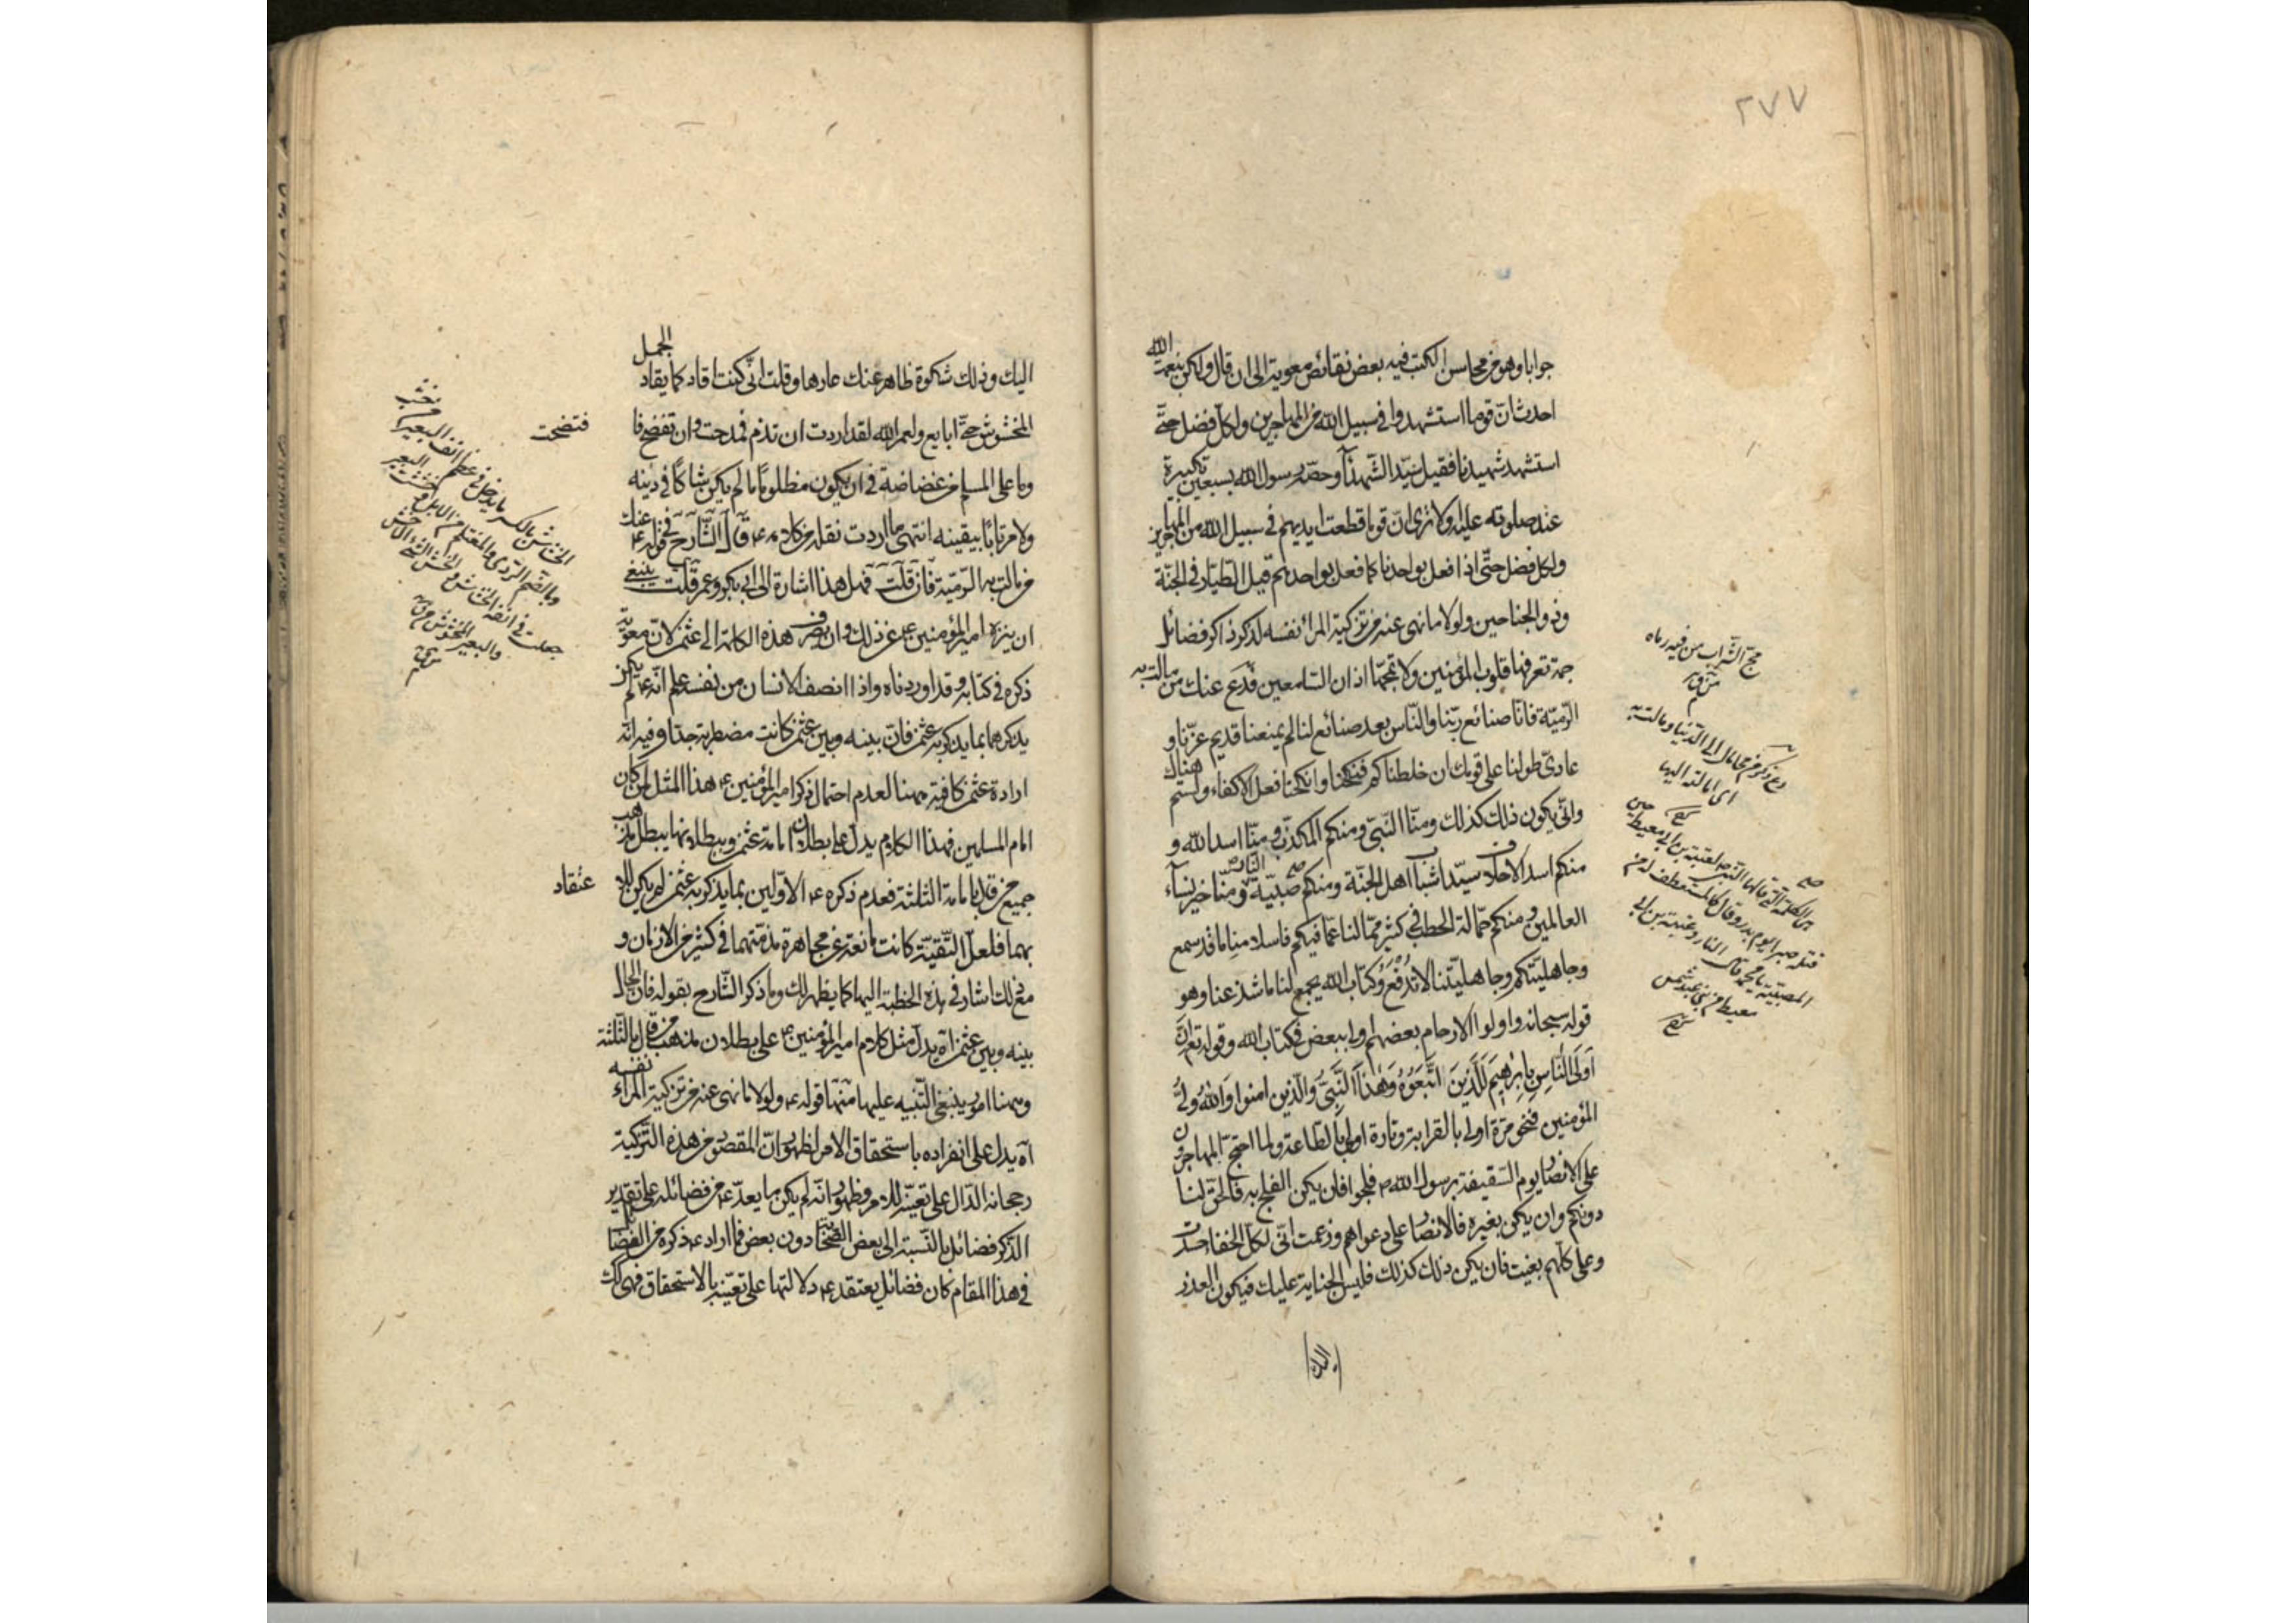 ٢٧٧
جوابا وهو من محاسن الكتب فيه بعض نقائص معوية الى ان قال ولكن بنعمة الله
احدث انّ قوما استشهدوا فى سبيل الله من المهاجرين ولكلّ فضل حتّى
استشهد شهيدنا فقيل سيّد الشّهدآء وخصّه رسول الله بسبعين تكبيرة
عند صلوته عليه اولا ترى انّ قوما قطعت ايديهم فى سبيل الله من المهاجرين
ولكل فضل حتّى اذا فعل بواحدنا كما فعل بواحدهم قيل الطيّار فى الجنّة
وذو الجناحين ولولا ما نهى عنه من تزكية المرا نفسه لذكر ذاكر فضائل
جمة تعرفها قلوب المؤمنين ولا تمجّها اذان السّامعين فدَع عنك من مالت به
الرّميّة فانّا صنائع ربّنا والنّاس بعد صنائع لنا لم يمنعنا قديم عزّنا و
عادىّ طولنا على قومك ان خلطناكم فنكحنا وانكحنا فعل الاكفاء ولستم هناك
وانّى يكون ذلك كذلك ومنّا النّبىّ ومنكم المكذّب ومنّا اسد الله و
منكم اسد الاحلاف ومنّا سيّدا شباب اهل الجنّة ومنكم صبيّة النار ومنّا خير نسآء
العالمين ومنكم حمّالة الحطب فى كثير ممّا لنا عمّا فيكم فاسلامنا ما قد سمع
وجاهليّتكم وجاهليّتنا لا تُدْفَعُ وكتاب الله يجمع لنا ما شذ عنا وهو
قوله سبحانه واولوا الارحام بعضهم اولى ببعض فى كتاب الله وقوله تع انّ
اَوْلَى النَّاسِ بِاِبْرٰهِيمَ لَلَّذِينَ اتَّبَعُوهُ وَهٰذَا النَّبِىُّ وَالَّذِين امنوا وَاللهُ وَلِىُّ
المؤمنين فنحن مرّة اولى بالقرابة وتارة اولى بالطّاعة ولما احتجّ المهاجرون
على الانصار يوم السّقيفة برسول الله ص فلجوا فان يكن الفلج به فالحقّ لنا
دونكم وان يكن بغيره فالانصار على دعواهم وزعمت انّى لكلّ الخلفاء حسدت
وعلى كلّهم بغيت فان يكن ذلك كذلك فليس الجناية عليك فيكون العذر
اليك
مجّ الشّراب من فيه رماه
اى امالته اليها
اليك وذلك شكوة ظاهر عنك عارها وقلت انّى كنت اقاد كما يقاد الجمل
المخشوش حتّى ابايع ولعمر الله لقد اردت ان تذم فمدحت وان تفضح فا
فتضحت
وما على المسلم من غضاضة فى ان يكون مظلومًا ما لم يكن شاكًا فى دينه
ولا مرتابًا بيقينه انتهى ما اردت نقله من كلامه ع قال الشّارح فى قوله ع فدع عنك
من مالت به الرّميّة فان قلت فهل هذا اشارة الى ابى بكر وعمر قلت ينبغى
ان ينزه امير المؤمنين ع عن ذلك وان يصرف هذه الكلمة الى عثمن لانّ معوية
ذكره فى كتابه وقد اوردناه واذا انصف الانسان من نفسه علم انّه ع لم يكن
يذكرهما بما يذكر به عثمن فانّ بينه وبين عثمن كانت مضطربة جدّا وفيه انّه
ارادة عثمن كافية ههنا لعدم احتمال ذكر امير المؤمنين ع هذا المثل لمن كان
امام المسلمين فهذا الكلام يدلّ على بطلان امامة عثمن وببطلانها يبطل مذهب
جميع من قال بامامة الثلثة فعدم ذكره ع الاوّلين بما يذكر به عثمن لم يكن للا
عتقاد
بهما فلعلّ التّقيّة كانت مانعة عن مجاهرة مذمّتهما فى كثير من الازمان و
مع ذلك اشار فى هذه الخطبة اليها كما يظهر لك وما ذكر الشّارح بقوله فان الحال
بينه وبين عثمن آه يدلّ مثل كلام امير المؤمنين ع على بطلان مذهب من قال بالثّلثة
وههنا امور ينبغى التّنبيه عليها منها قوله ع ولولا ما نهى عنه من تزكية المراء نفسه
آه يدل على انفراده باستحقاق الامر لظهور انّ المقصود من هذه التّزكية
رجحانه الدّال على تعيّنه للامر وظهور انّه لم يكن ما يعدّه ع من فضائله على تقدير
الذّكر فضائل بالنّسبة الى بعض الصّحابة دون بعض فما اراد ع ذكره من الفضائل
فى هذا المقام كان فضائل يعتقد ع دلالتها على تعيّنه بالاستحقاق فهى لك